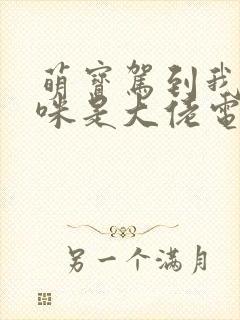 萌宝驾到我
咪是大佬电
另一个满月